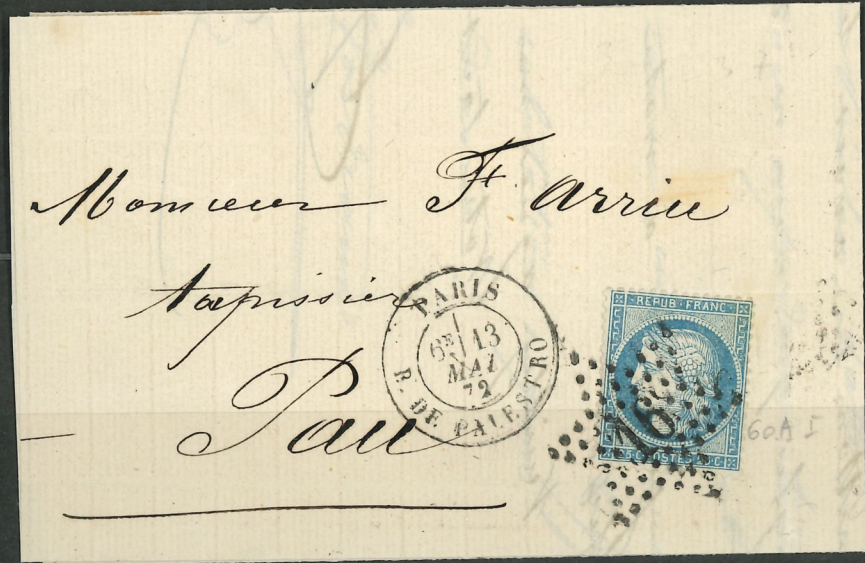 Monsieur F. Arrieu
tapissier
Pau
PARIS
6E 13
MAI
72
R. DE PALESTRO
REPUB FRANC
16
25 C POSTES 25 C
60A I